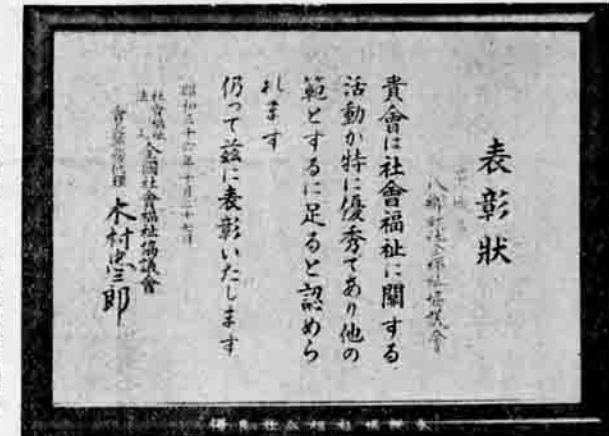 表彰狀
八郷町社会福祉協議会
貴會は社會福祉に關する
活動か特に優秀であり他の
範とするに足ると認めら
れます
仍って茲に表彰いたします
昭和三十六年十月二十七日
社會福祉法人 全國社會福祉協議會
會長職務代理 木村忠二郎